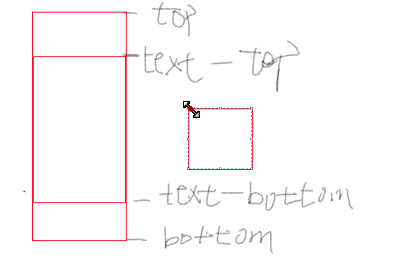 top
text-top
text-bottom
bottom